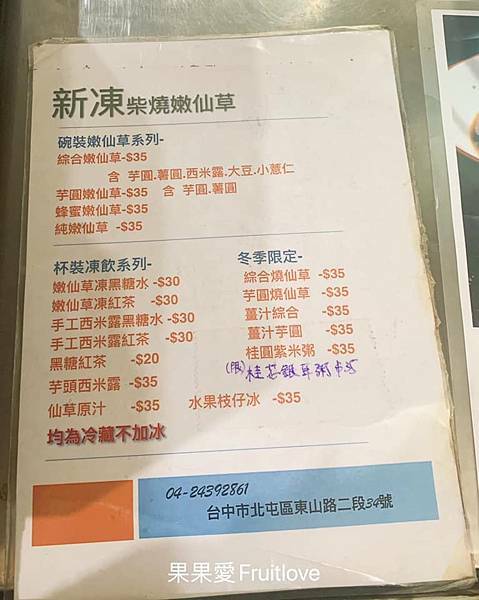 新凍柴燒嫩仙草
碗裝嫩仙草系列-
綜合嫩仙草-$35
含 芋圓.薯圓.西米露.大豆.小薏仁
芋圓嫩仙草-$35 含 芋圓.薯圓
蜂蜜嫩仙草-$35
純嫩仙草 -$35
杯裝凍飲系列-
嫩仙草凍黑糖水 -$30
嫩仙草凍紅茶 -$30
手工西米露黑糖水 -$30
手工西米露紅茶 -$30
黑糖紅茶 -$20
芋頭西米露 -$35
仙草原汁 -$35
冬季限定-
綜合燒仙草 -$35
芋圓燒仙草 -$35
薑汁綜合 -$35
薑汁芋圓 -$35
桂圓紫米粥 -$35
(限)桂花銀耳粥
水果枝仔冰 -$35
均為冷藏不加冰
04-24392861
台中市北屯區東山路二段34號
果果愛Fruitlove